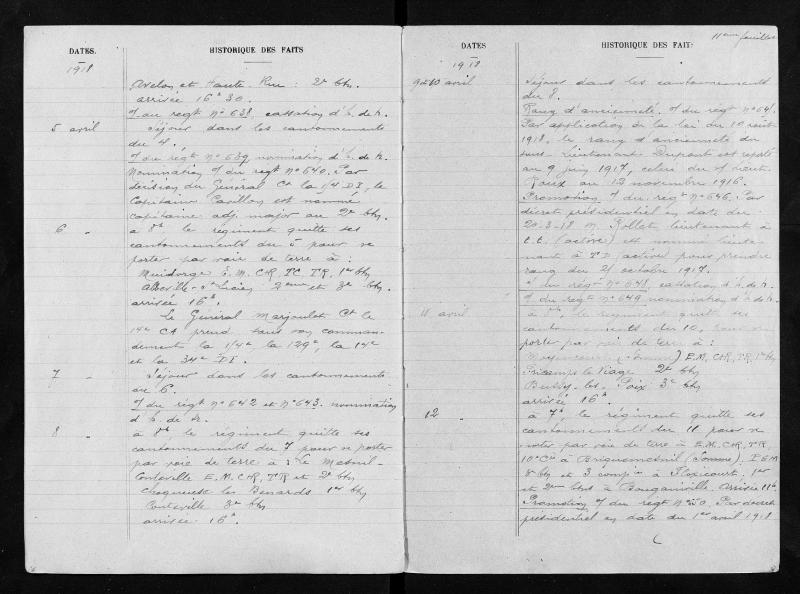 DATES. HISTORIQUE DES FAITS
1918
Avelon et Haute Rue : 2e btn.
arrivée 16h30.
O/ du régt No 638, cassation d'h. de t.
5 avril Séjour dans les cantonnements
du 4.
O/ du régt No 639 nomination d'h. de t.
Nomination O/ du régt No 640. Par
décision du Général Ct la 14e DI, le
Capitaine Pavillon est nommé
capitaine adj. major au 2e btn.
6 " à 8h le régiment quitte ses
cantonnements du 5 pour se
porter par voie de terre à :
Muidorge E.M. CR TC TR, 1er btn
Abbeville-St Lucien 2ème et 3e btn.
arrivée 16h.
Le Général Marjoulet Ct le
14e CA prend sous son comman-
dement la 14e la 129e, la 14e
et la 34e DI.
7 " Séjour dans les cantonnements
du 6.
O/ du régt No 642 et No 643. nomination
d'h. de t.
8 " à 8h le régiment quitte ses
cantonnements du 7 pour se porter
par voie de terre à : Le Mesnil-
Conteville E.M. CHR, TR et 2e btn
Choqueuse les Bénards 1er btn
Conteville 3e btn
arrivée 16h.
11eme feuillet
DATES HISTORIQUE DES FAIT
1918
9 et 10 avril Séjour dans les cantonnements
du 8.
Rang d'ancienneté O/ du régt No 645
Par application de la loi du 10 août
1918, le rang d'ancienneté du
sous-lieutenant Dupont est reporté
au 9 juin 1917, celui du s/ lieut.
Roux au 12 novembre 1916.
Promotion O/ du régt No 646. Par
décret présidentiel en date du
20-3-18 M. Rollet, lieutenant à
t.t. (active) est nommé lieute-
nant à T.D. active pour prendre
rang du 21 octobre 1917.
O/ du régt No 648, cassation d'h. de t.
O/ du régt No 649 nomination d'h. de t.
11 avril à le régiment quit ses
cantonnements du 10, pour se
porter par voie de terre à :
(Somme) E.M, CHR, TR, 1er btn
Fricamps le Viage 2e btn
Bussy-les-Poix 3e btn
arrivée 16h.
12 " à 7h, le régiment quitte ses
cantonnements du 11 pour se
porter par voie de terre à E.M. CHR, TR,
10e Cie à Briquemesnil (Somme), I E.M
btn et 3 comp à Floxicourt, 1er
et 2ème btns à Bougainville. Arrivée 11h.
Promotion O/ du régt No 650. Par décret
présidentiel en date du 1er avril 1918